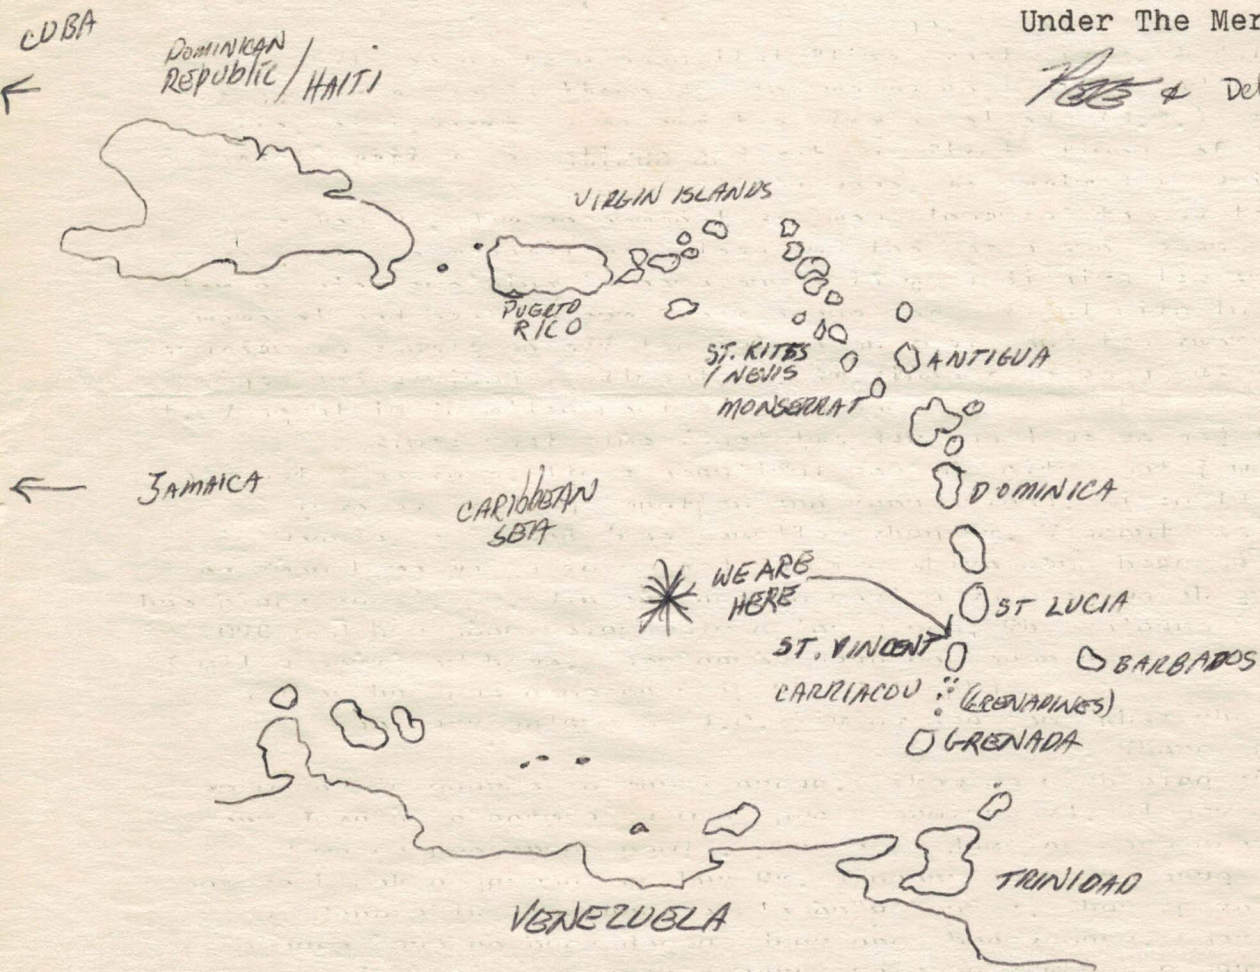 Under The Mer
Pete &
CUBA
DOMINICAN
REPUBLIC / HAITI
VIRGIN ISLANDS
PUERTO
RICO
ST. KITES
/ NEVIS
ANTIGUA
MONSERRAT
JAMAICA
CARIBBEAN
SEA
DOMINICA
WE ARE
HERE
ST LUCIA
ST. VINCENT
BARBADOS
CARRIACOU (GRENADINES)
GRENADA
TRINIDAD
VENEZUELA